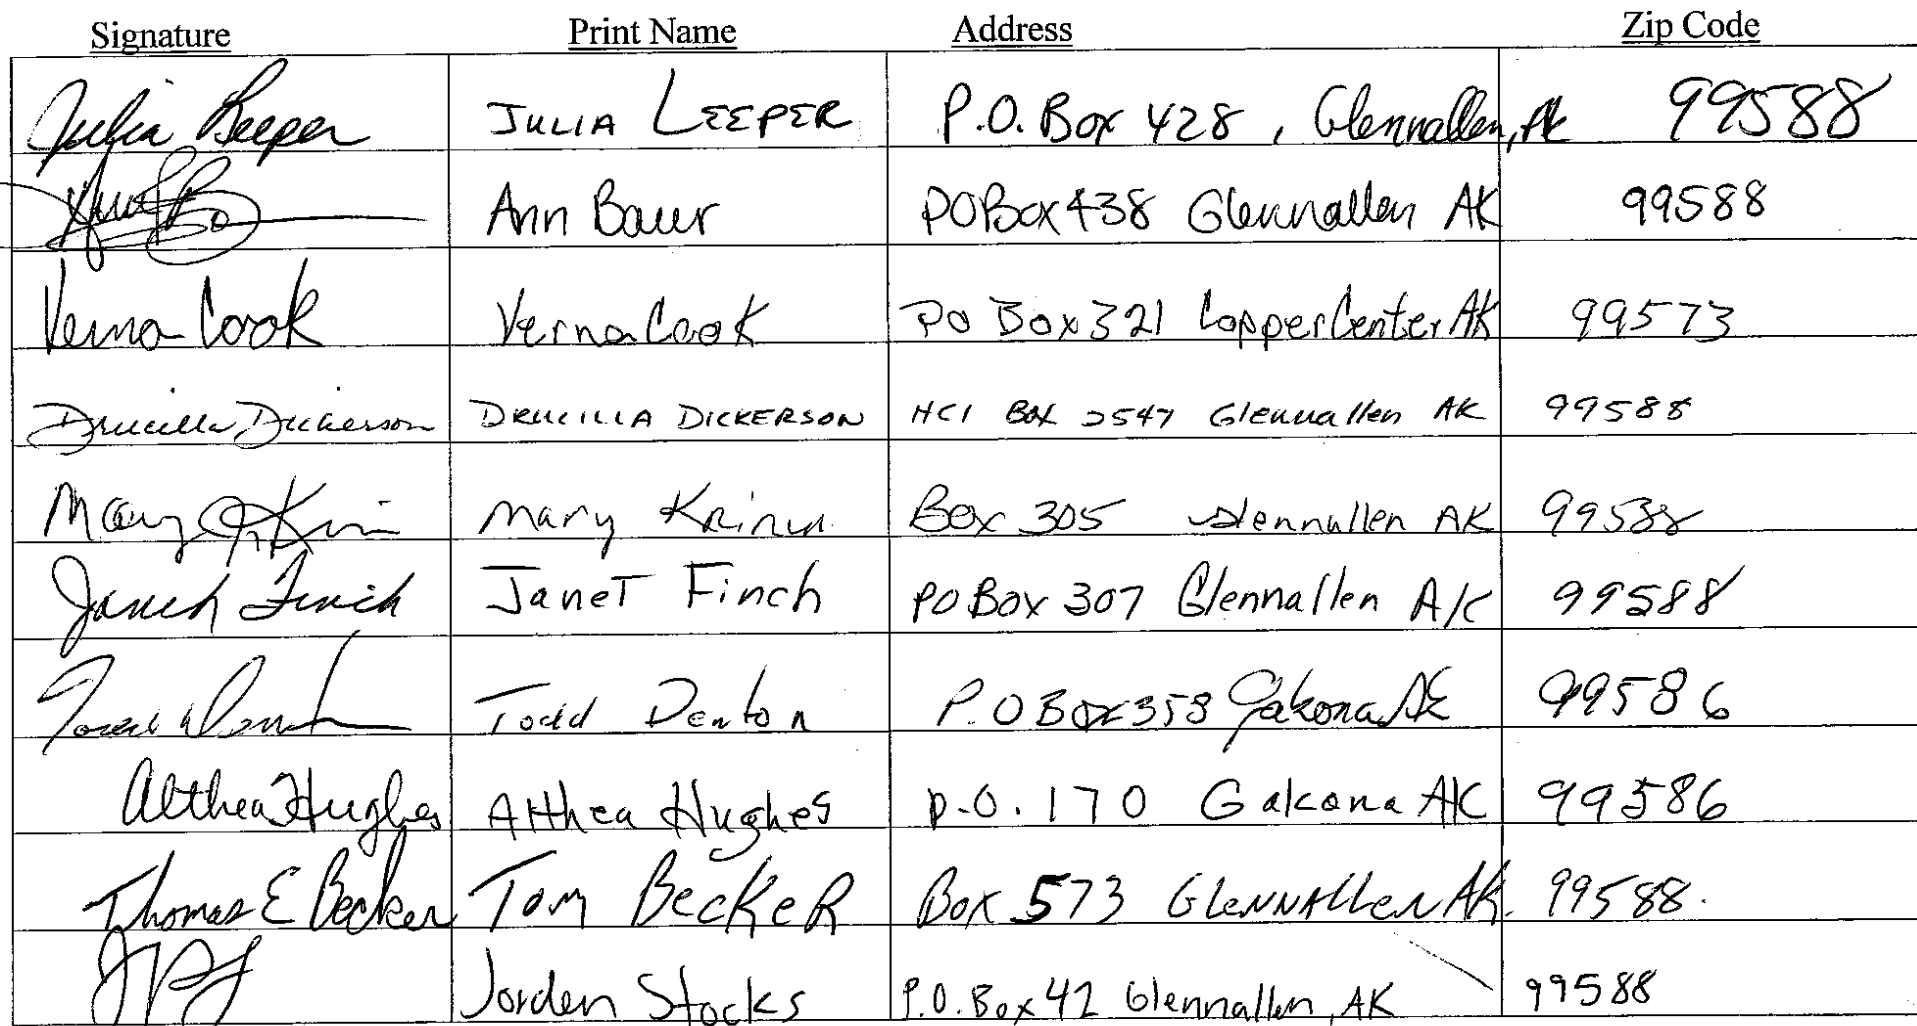 Signature Print Name Address Zip Code
Julia Leeper JULIA LEEPER P.O. Box 428, Glennallen, AK 99588
Ann Bauer PO Box 438 Glennallen AK 99588
Verna Cook Verna Cook PO Box 321 Copper Center AK 99573
Drucilla Dickerson DRUCILLA DICKERSON HC1 BOX 2547 Glennallen AK 99588
Mary Mary Box 305 Glennallen AK 99588
Janet Finch Janet Finch PO Box 307 Glennallen AK 99588
Todd Denton P.O Box 358 Gakona AK 99586
Althea Hughes Althea Hughes P.O. 170 Gakona AK 99586
Thomas E Becker Tom Becker Box 573 Glennallen AK. 99588.
Jorden Stocks P.O. Box 42 Glennallen, AK 99588